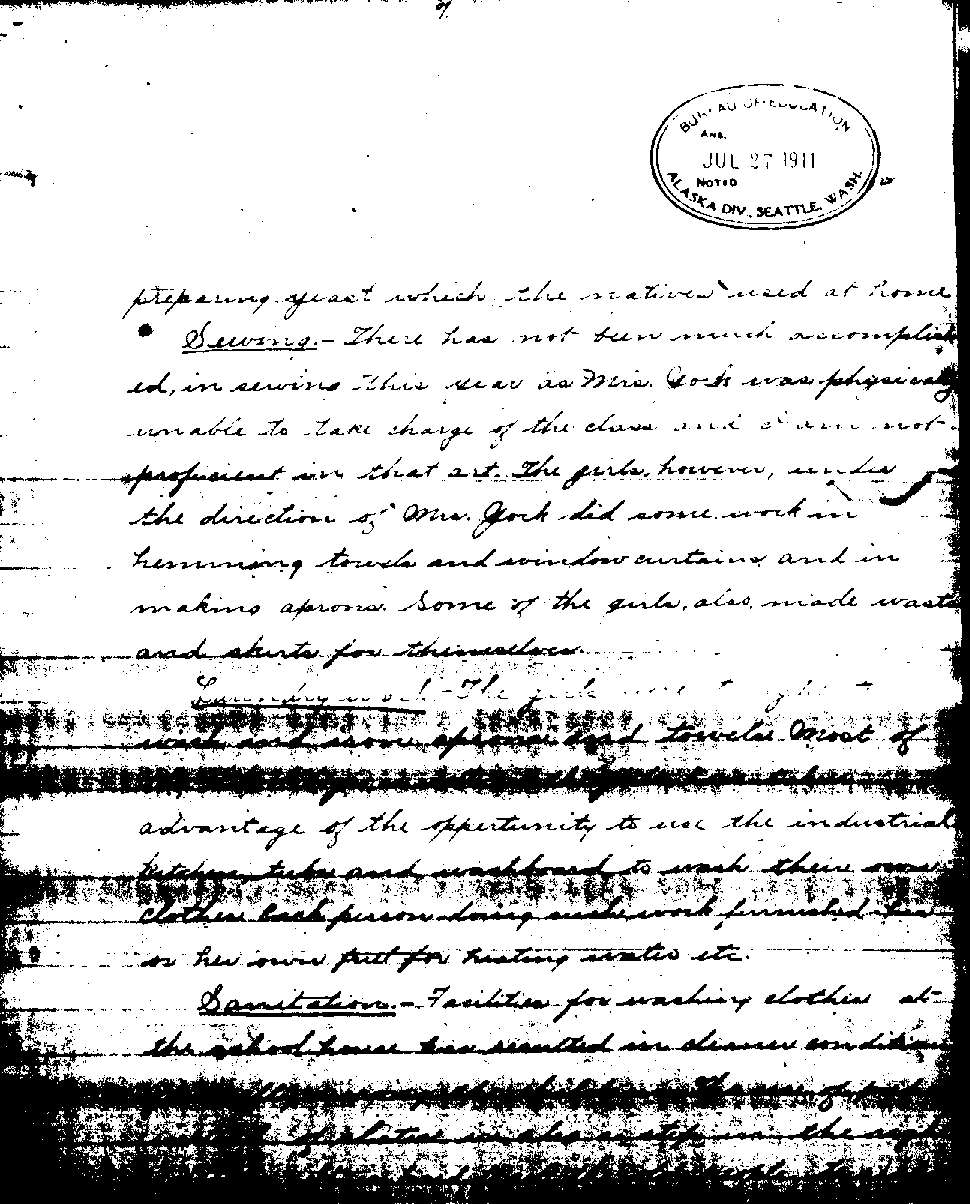 BUREAU OF EDUCATION
ANS.
JUL 27 1911
NOTED
ALASKA DIV., SEATTLE, WASH.
preparing yeast which the natives used at home
Sewing. - There has not been much accomplish
ed, in sewing this year as Mrs. York was physically
unable to take charge of the class and I am not
proficient in that art. The girls, however, under
the direction of Mrs. York did some work in
hemming towels and window curtains and in
making aprons. Some of the girls, also, made waists
and skirts for themselves.
Laundry work - The girls were taught to
wash and iron aprons and towels. Most of
advantage of the oppertunity to use the industrial
kitchen, tubs and washboard to wash their own
clothes. Each person doing such work furnished his
or her own fuel for heating water etc.
Sanitation. - Facilities for washing clothes at
the school house has resulted in cleaner condition
The use of
of slates is also a step in the right